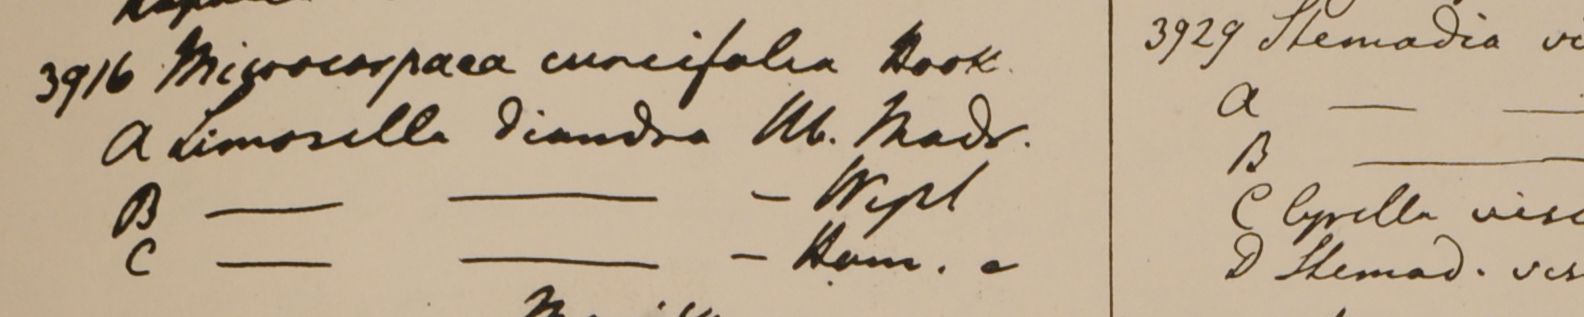 3916 Microcarpaea cuneifolia Hook.
A Limosella diandra Hb. Madr.
B — — — Wight
C — — — Ham. e
3929 Stemadia
A — —
B —
C Cyrilla visc
D Stemad. vis